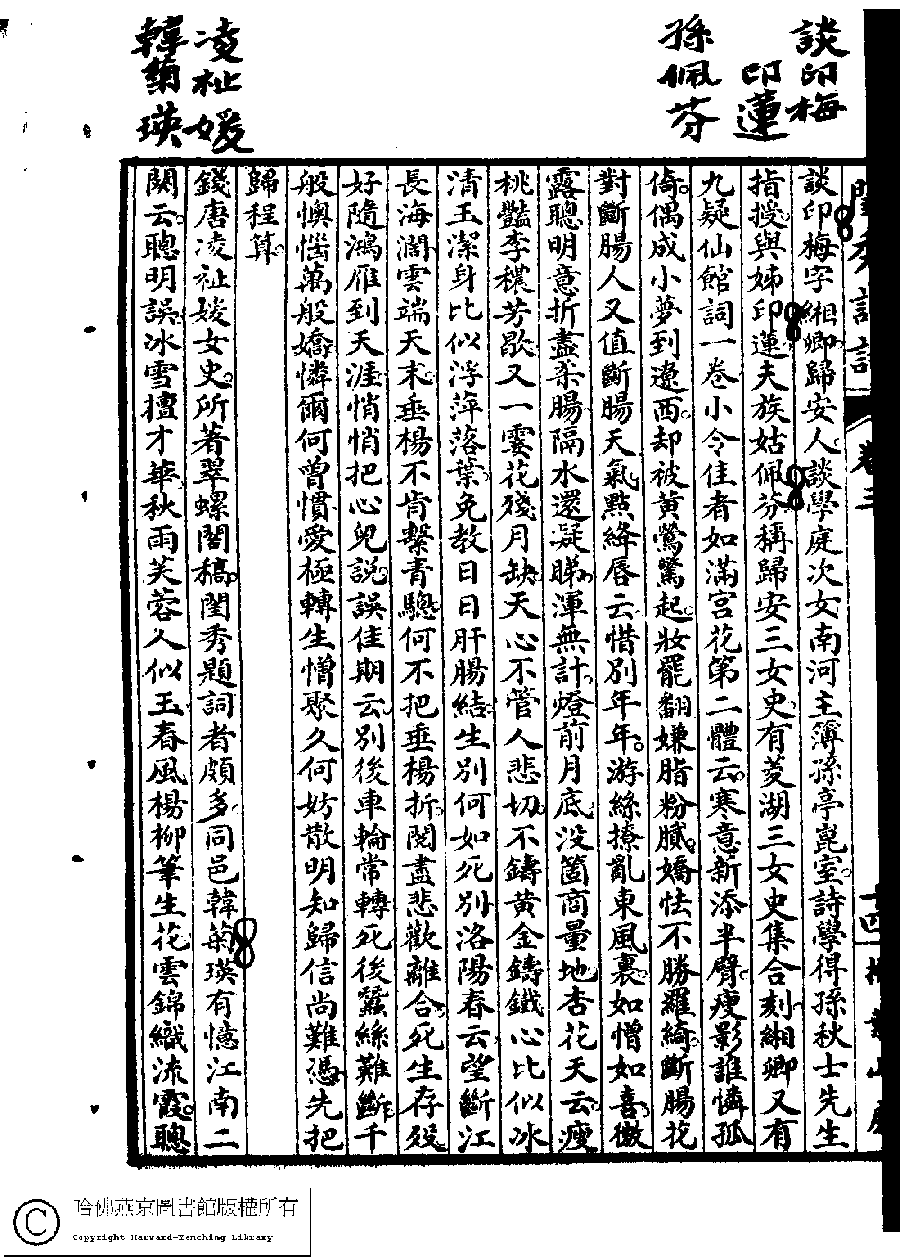 談印梅
印蓮
孫佩芬
凌祉媛
韓菊瑛
閨秀詞話 卷三
談印梅字緗卿歸安人談學庭次女南河主簿孫亭崑室詩學得孫秋士先生
指授與姊印蓮夫族姑佩芬稱歸安三女史有菱湖三女史集合刻緗卿又有
九疑仙館詞一卷小令佳者如滿宮花第二體云寒意新添半臂瘦影誰憐孤
倚偶成小夢到遼西却被黄鶯驚起妝罷翻嫌脂粉膩嬌怯不勝羅綺斷腸花
對斷腸人又值斷腸天氣點絳唇云惜別年年游絲撩亂東風裏如憎如喜微
露聰明意折盡柔腸隔水還疑睇渾無計燈前月底没箇商量地杏花天云瘦
桃豔李穠芳歇又一霎花殘月缺天心不管人悲切不鑄黄金鑄鐵心比似冰
清玉潔身比似浮萍落葉免教日日肝腸結生別何如死別洛陽春云望斷江
長海濶雲端天末垂楊不肯繫青驄何不把垂楊折閲盡悲歡離合死生存殁
好隨鴻雁到天涯悄悄把心兒説誤佳期云別後車輪常轉死後蠶絲難斷千
般懊惱萬般嬌憐爾何曾慣愛極轉生憎聚久何妨散明知歸信尚難憑先把
歸程算
錢唐凌祉媛女史所著翠螺閣稿閨秀題詞者頗多同邑韓菊瑛有憶江南二
闋云聰明誤冰雪擅才華秋雨芙蓉人似玉春風楊柳筆生花雲錦織流霞聰
哈佛燕京圖書館版權所有
Copyright Harvard-Yenching Library